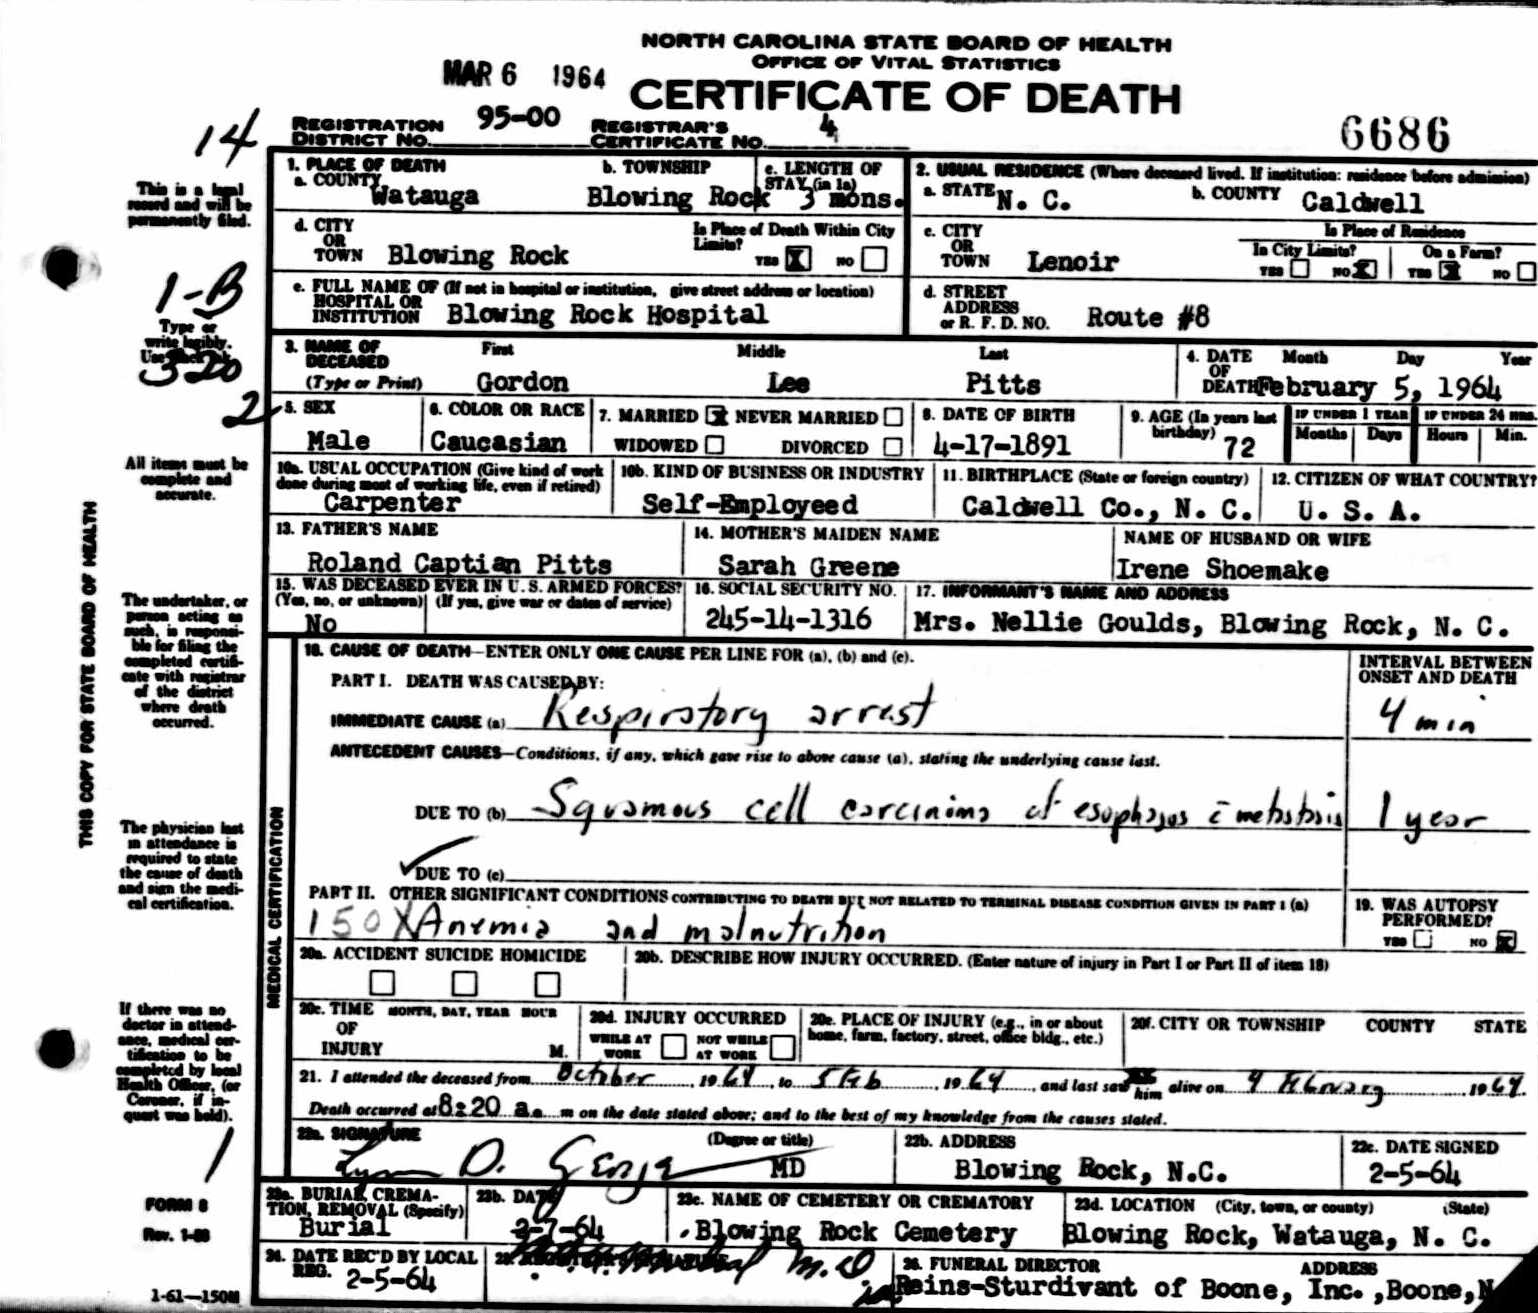 NORTH CAROLINA STATE BOARD OF HEALTH
OFFICE OF VITAL STATISTICS
MAR 6 1964
CERTIFICATE OF DEATH
REGISTRATION DISTRICT NO. 95-00 REGISTRAR'S CERTIFICATE NO. 4
6686
14
This is a legal record and will be permanently filed.
1. PLACE OF DEATH
a. COUNTY Watauga
b. TOWNSHIP Blowing Rock
c. LENGTH OF STAY (in 1a) 3 mons.
2. USUAL RESIDENCE (Where deceased lived. If institution: residence before admission)
a. STATE N. C.
b. COUNTY Caldwell
d. CITY OR TOWN Blowing Rock
Is Place of Death Within City Limits? YES X NO
c. CITY OR TOWN Lenoir
Is Place of Residence
In City Limits? YES NO X
On a Farm? YES X NO
e. FULL NAME OF (If not in hospital or institution, give street address or location)
HOSPITAL OR INSTITUTION Blowing Rock Hospital
d. STREET ADDRESS or R. F. D. NO. Route #8
1-B
Type or write legibly.
320
2
3. NAME OF DECEASED (Type or Print)
First Gordon
Middle Lee
Last Pitts
4. DATE OF DEATH Month Day Year
February 5, 1964
5. SEX Male
6. COLOR OR RACE Caucasian
7. MARRIED X NEVER MARRIED
WIDOWED DIVORCED
8. DATE OF BIRTH 4-17-1891
9. AGE (In years last birthday) 72
IF UNDER 1 YEAR Months Days
IF UNDER 24 HRS. Hours Min.
All items must be complete and accurate.
10a. USUAL OCCUPATION (Give kind of work done during most of working life, even if retired)
Carpenter
10b. KIND OF BUSINESS OR INDUSTRY
Self-Employeed
11. BIRTHPLACE (State or foreign country)
Caldwell Co., N. C.
12. CITIZEN OF WHAT COUNTRY?
U. S. A.
13. FATHER'S NAME
Roland Captian Pitts
14. MOTHER'S MAIDEN NAME
Sarah Greene
NAME OF HUSBAND OR WIFE
Irene Shoemake
15. WAS DECEASED EVER IN U. S. ARMED FORCES?
(Yes, no, or unknown) (If yes, give war or dates of service)
No
16. SOCIAL SECURITY NO.
245-14-1316
17. INFORMANT'S NAME AND ADDRESS
Mrs. Nellie Goulds, Blowing Rock, N. C.
THIS COPY FOR STATE BOARD OF HEALTH
The undertaker, or person acting as such, is responsible for filing the completed certificate with registrar of the district where death occurred.
MEDICAL CERTIFICATION
18. CAUSE OF DEATH—ENTER ONLY ONE CAUSE PER LINE FOR (a), (b) and (c).
INTERVAL BETWEEN ONSET AND DEATH
PART I. DEATH WAS CAUSED BY:
IMMEDIATE CAUSE (a) Respiratory arrest 4 min
ANTECEDENT CAUSES—Conditions, if any, which gave rise to above cause (a), stating the underlying cause last.
DUE TO (b) Squamous cell carcinoma of esophagus c̄ metastasis 1 year
DUE TO (c)
The physician last in attendance is required to state the cause of death and sign the medical certification.
PART II. OTHER SIGNIFICANT CONDITIONS CONTRIBUTING TO DEATH BUT NOT RELATED TO TERMINAL DISEASE CONDITION GIVEN IN PART I (a)
150X Anemia and malnutrition
19. WAS AUTOPSY PERFORMED? YES NO X
20a. ACCIDENT SUICIDE HOMICIDE
20b. DESCRIBE HOW INJURY OCCURRED. (Enter nature of injury in Part I or Part II of item 18)
20c. TIME OF INJURY MONTH, DAY, YEAR HOUR M.
20d. INJURY OCCURRED
WHILE AT WORK NOT WHILE AT WORK
20e. PLACE OF INJURY (e.g., in or about home, farm, factory, street, office bldg., etc.)
20f. CITY OR TOWNSHIP COUNTY STATE
If there was no doctor in attendance, medical certification to be completed by local Health Officer, (or Coroner, if inquest was held).
21. I attended the deceased from October 1964, to 5 Feb, 1964, and last saw him alive on 4 February 1964.
Death occurred at 8:20 a. m on the date stated above; and to the best of my knowledge from the causes stated.
22a. SIGNATURE (Degree or title)
Lynn D. George MD
22b. ADDRESS
Blowing Rock, N.C.
22c. DATE SIGNED
2-5-64
1
FORM 8
Rev. 1-58
23a. BURIAL, CREMATION, REMOVAL (Specify)
Burial
23b. DATE
2-7-64
23c. NAME OF CEMETERY OR CREMATORY
Blowing Rock Cemetery
23d. LOCATION (City, town, or county) (State)
Blowing Rock, Watauga, N. C.
24. DATE REC'D BY LOCAL REG. 2-5-64
M.D
26. FUNERAL DIRECTOR ADDRESS
Reins-Sturdivant of Boone, Inc.,Boone,N
1-61—150M